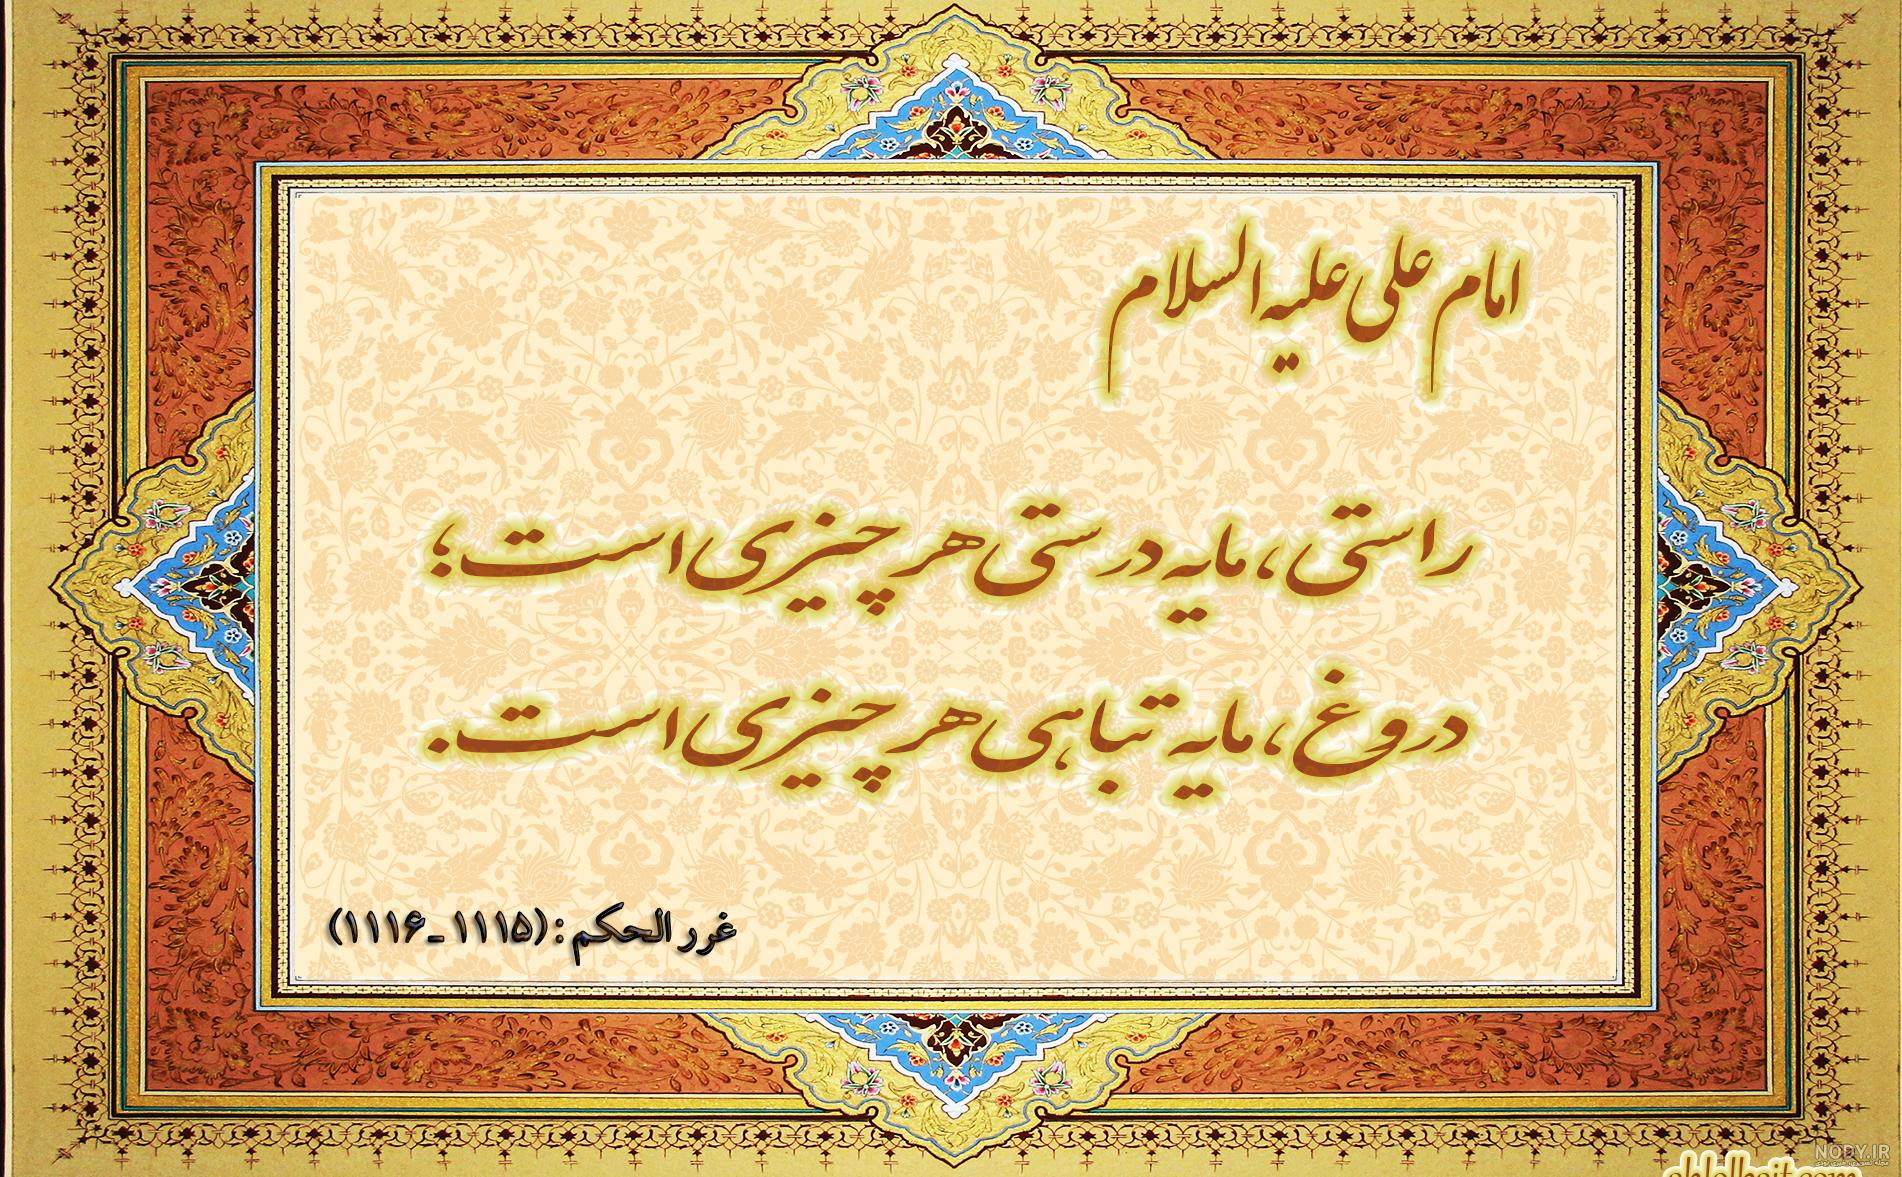 امام علی علیه السلام
راستی، مایه درستی هر چیزی است؛
دروغ، مایه تباهی هر چیزی است.
غرر الحکم: (۱۱۱۵ ـ ۱۱۱۶)
NODY.IR